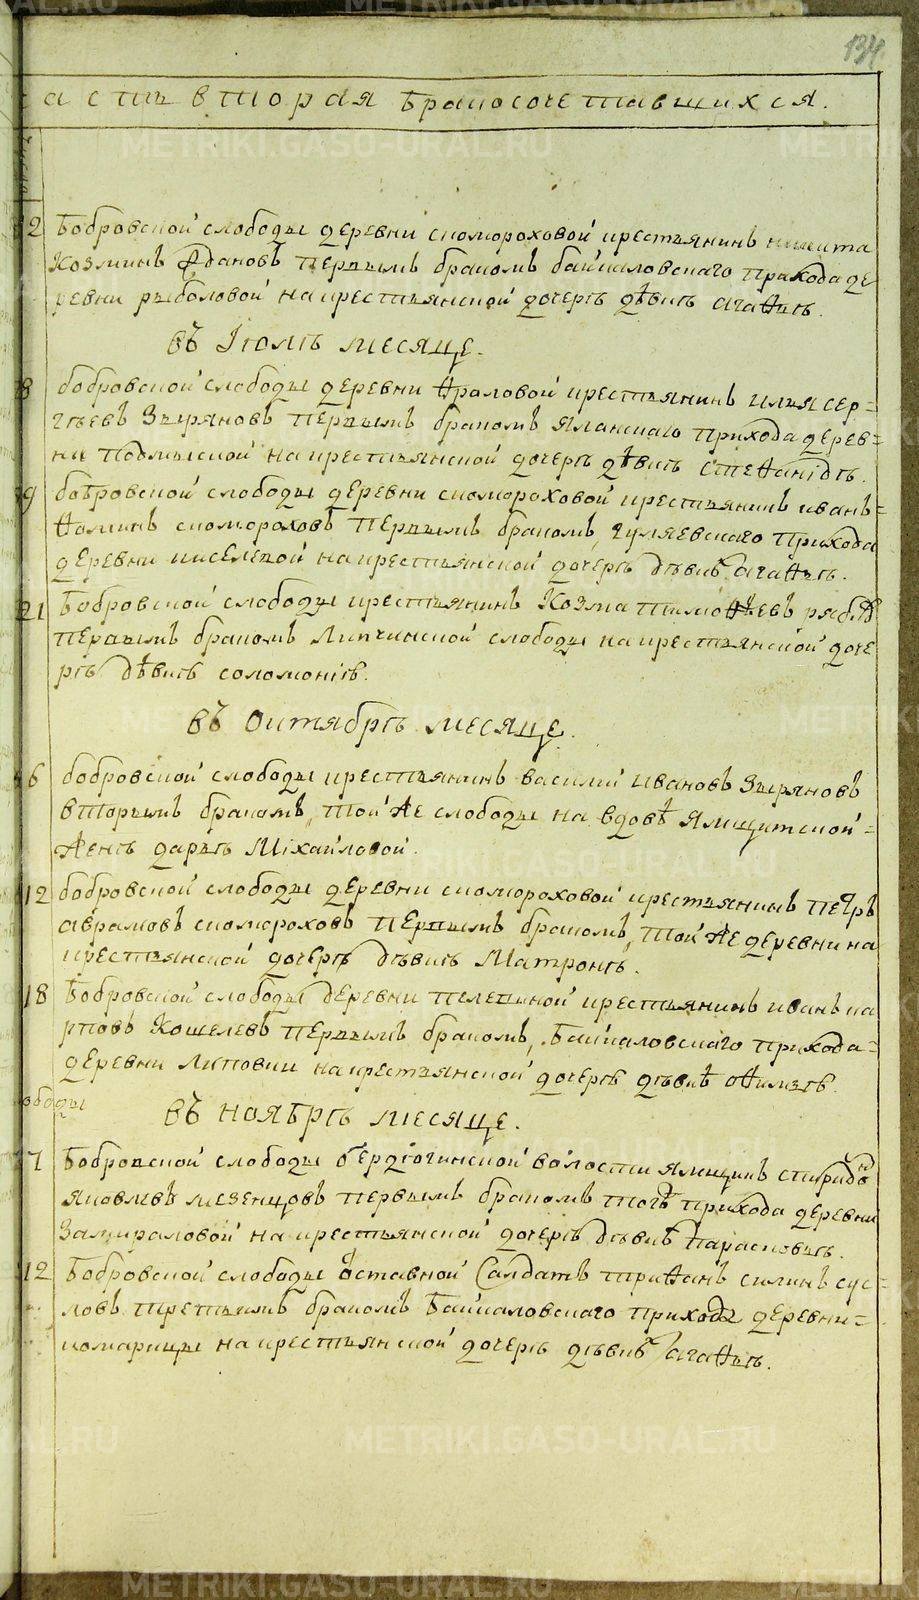 134
асть вторая бракосочетавшихся.
2 Бобровской слободы деревни скомороховой крестьянинъ никита
Козминъ Ждановъ первымъ бракомъ байкаловскаго прихода де
ревни рыболовой на крестьянской дочерѣ дѣвкѣ агафьѣ.
въ Iюлѣ месяце.
8 бобровской слободы деревни фраловой крестьянинъ илья сер-
гѣевъ Зыряновъ первымъ бракомъ Яланскаго прихода дерев-
ни на крестьянской дочерѣ дѣвкѣ стефанiдѣ.
9 бобровской слободы деревни скомороховой крестьянинъ иванъ-
фоминъ скомороховъ первымъ бракомъ, гуляевскаго прихода
деревни киселевой на крестьянской дочерѣ дѣвкѣ агафьѣ.
21 Бобровской слободы крестьянинъ Козма тимофѣевъ
первымъ бракомъ Липчинской слободы на крестьянской доче
рѣ дѣвкѣ соломонiѣ.
въ октябрѣ месяце.
6 бобровской слободы крестьянинъ василий ивановъ Зыряновъ
вторымъ бракомъ, той же слободы на вдовѣ ямщитской-
женѣ дарьѣ Мiхайловой.
12 бобровской слободы деревни скомороховой крестьянинъ петръ
аврамовъ скомороховъ первымъ бракомъ, той же деревни на
крестьянской дочерѣ дѣвкѣ Матронѣ.
18 Бобровской слободы деревни пелевиной крестьянинъ иванъ ка
рповъ Кошелевъ первымъ бракомъ, Байкаловскаго прихода-
деревни Липовки на крестьянской дочерѣ дѣвкѣ офимьѣ.
ободы
въ ноябрѣ месяце.
7 Бобровской слободы бердюгинской волости ямщикъ спиридо
яковлевъ мезенцовъ первымъ бракомъ тогѡ прихода деревни
Замираловой на крестьянской дочерѣ дѣвкѣ парасковьѣ.
12 Бобровской слободы ѡставной Салдатъ трифанъ силинъ сус-
ловъ третьимъ бракомъ Байкаловскаго прихода деревни-
комарицы на крестьянской дочерѣ дѣвкѣ агафьѣ.
METRIKI.GASO-URAL.RU